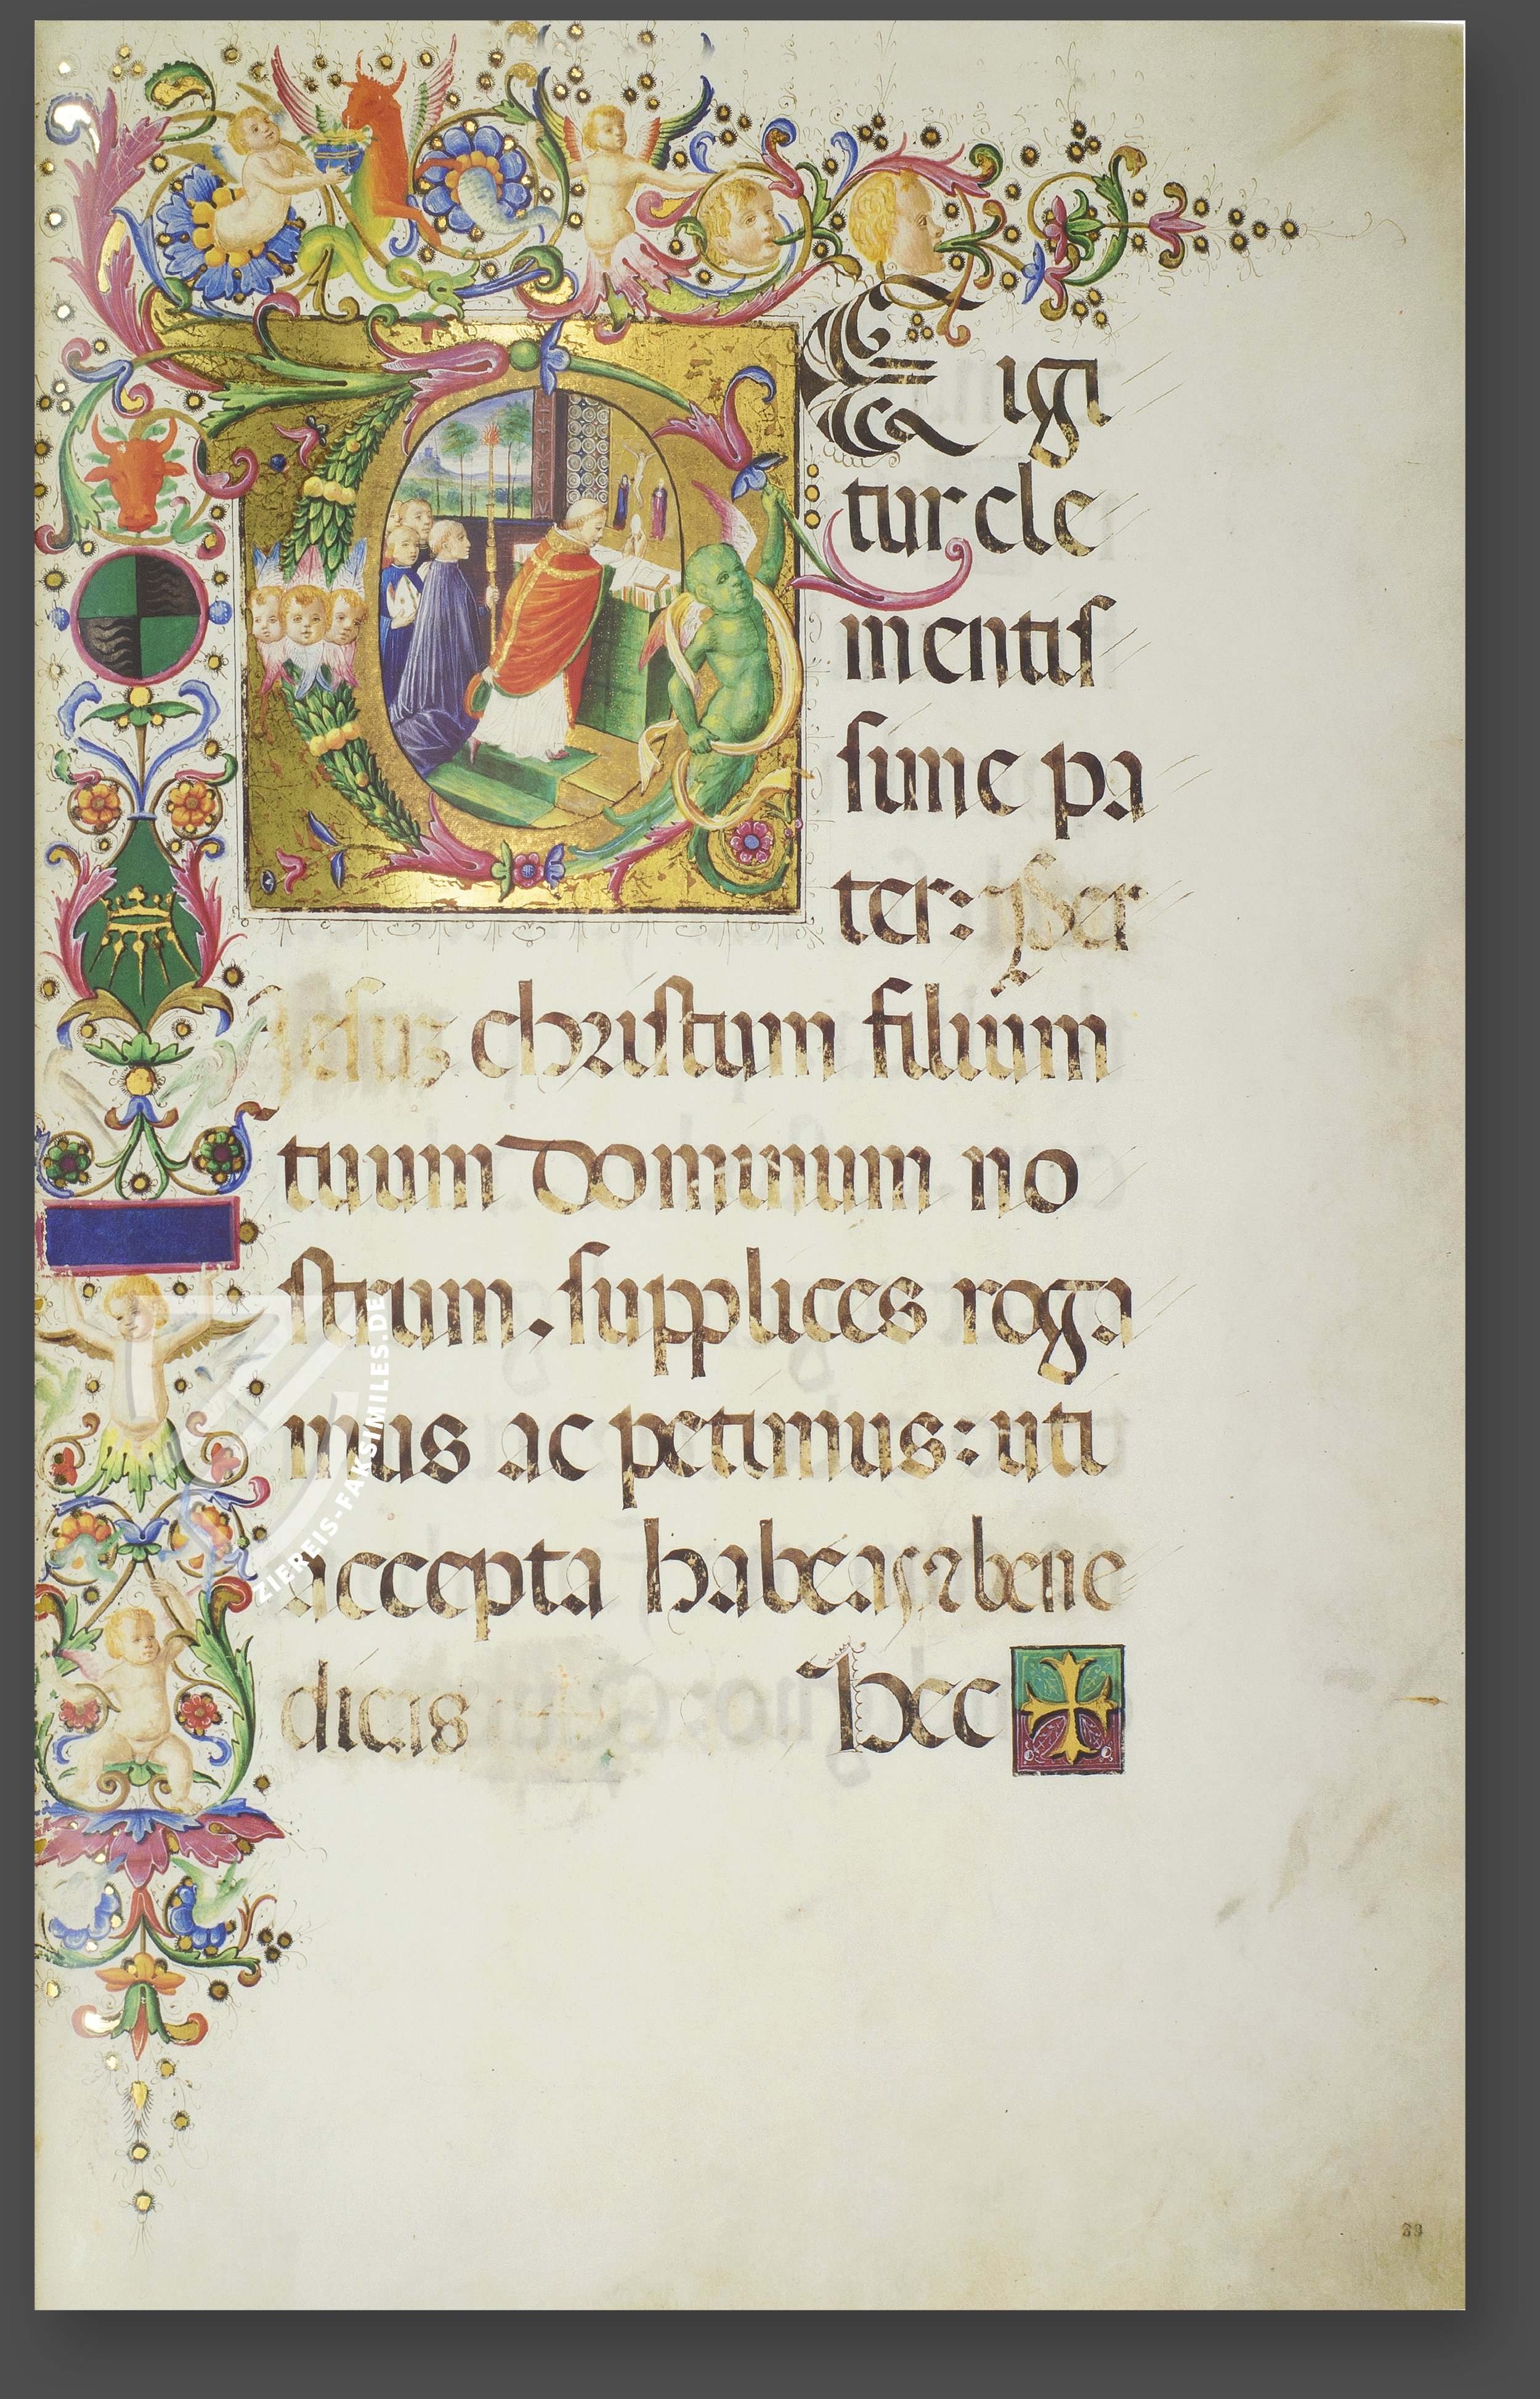 TE igi
tur cle
mentis
sime pa
ter: per
Jesus christum filium
tuum dominum no
strum, supplices roga
mus ac petimus: uti
accepta habeas ⁊ bene
dicis Hec ✠
ZIEREIS-FAKSIMILES.DE